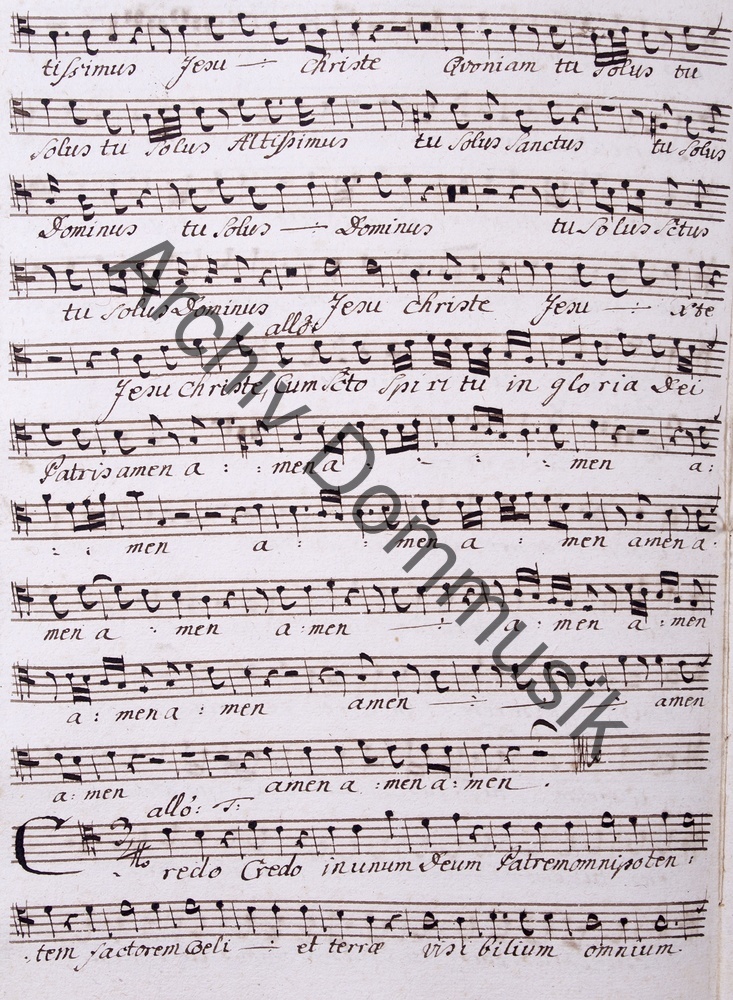 tissimus Jesu -:- Christe Quoniam tu Solus tu
Solus tu Solus Altissimus tu Solus Sanctus tu Solus
Dominus tu Solus -:- Dominus tu Solus Sctus
tu Solus Dominus Jesu Christe Jesu -:- Xte
allo
Jesu Christe, Cum Scto Spiritu in gloria Dei
Patris amen a : men a : men a :
: men a : : men a : men amen a :
men a : men a : men -:- a : men a : men
a : men a : men amen -:- amen
a : men amen a : men a : men .
allo: T:
Credo Credo in unum Deum Patrem omnipoten :
tem factorem Celi -:- et terræ visibilium omnium.
Archiv Dommusik